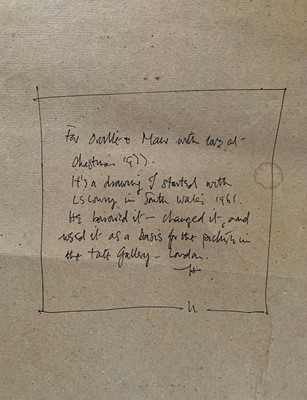 For Orville & Mair with love at
Christmas 1977.
It's a drawing I started with
LS Lowry in South Wales 1961.
He borrowed it – changed it, and
used it as a basis for the picture in
the Tate Gallery – London.